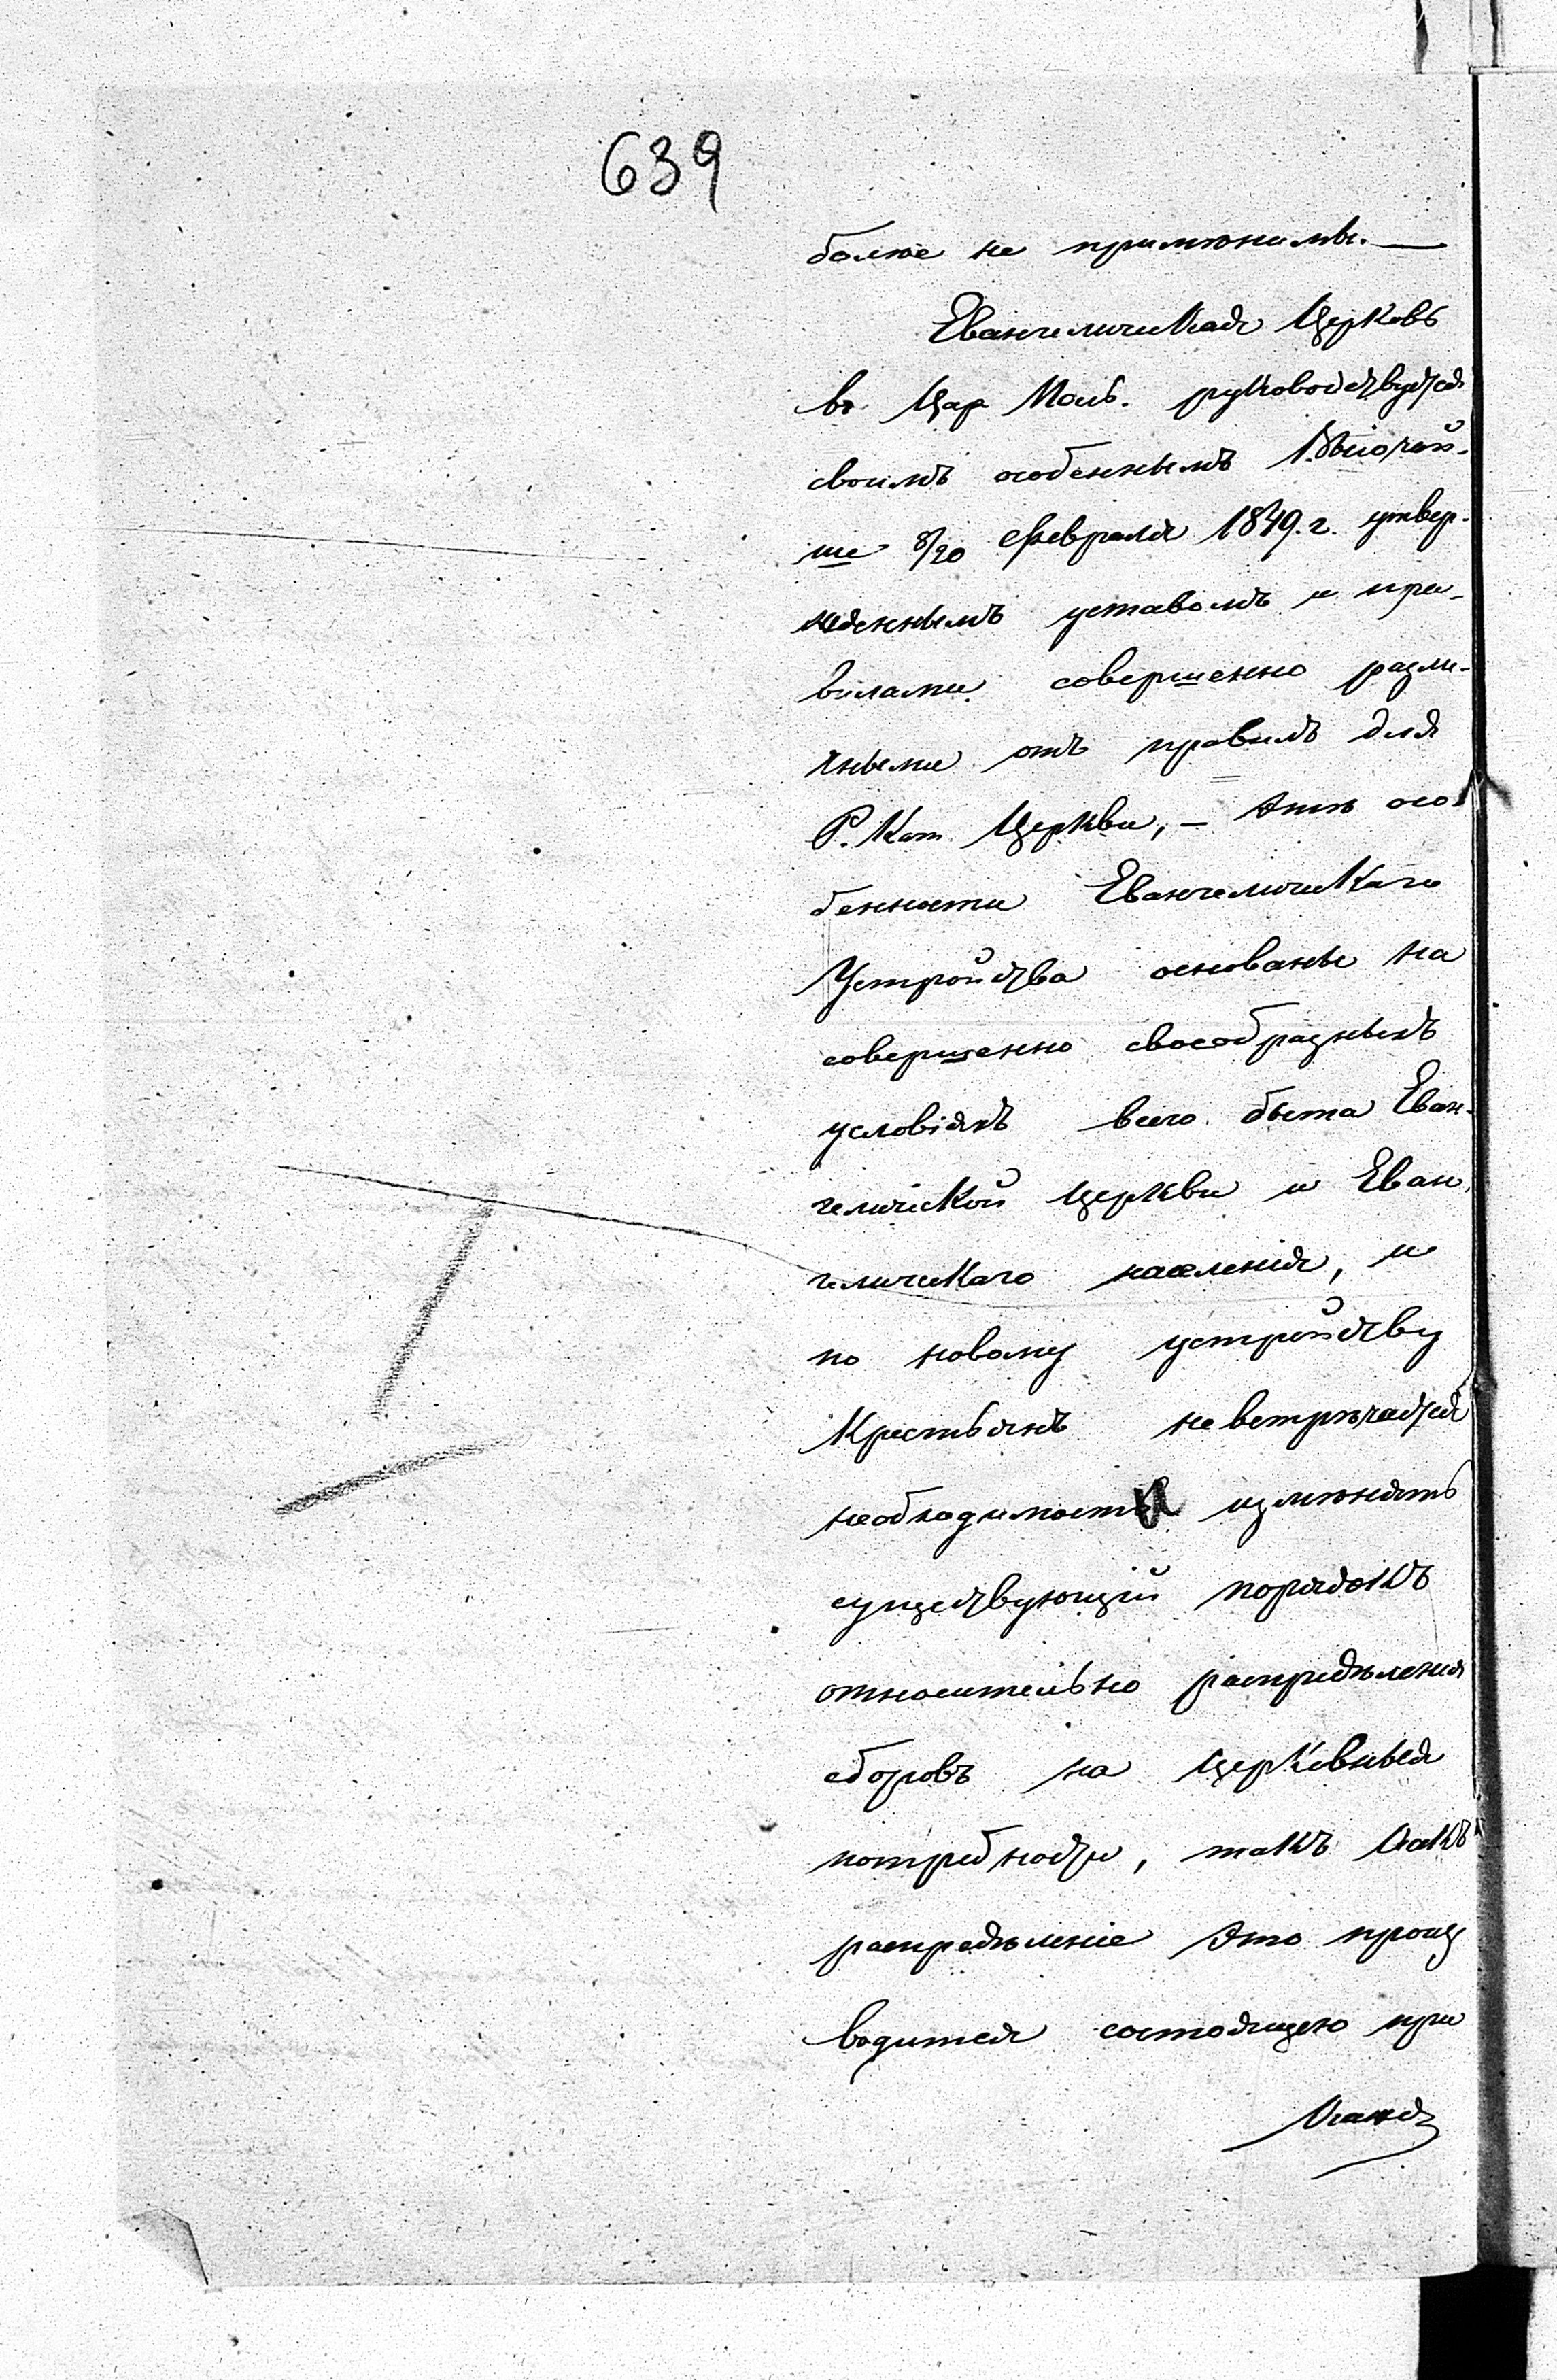 639
болѣе не примѣнимы. —
Евангелическая Церковь
въ Цар Поль. руководствуется
своимъ особеннымъ Высочай-
ше 8/20 февраля 1849. г. утвер-
жденнымъ уставомъ и пра-
вилами совершенно разли-
чными отъ правилъ для
Р. Кат Церкви, — Эти осо-
бенности Евангелическаго
Устройства основаны на
совершенно своеобразныхъ
условіяхъ всего быта Еван-
гелической Церкви и Еван-
гелическаго населенія, и
по новому устройству
Крестьянъ не встрѣчается
необходимости измѣнять
существующій порядокъ
относительно распредѣленія
сборовъ на Церковныя
потребности, такъ какъ
распредѣленіе это произ
водится состоящею при